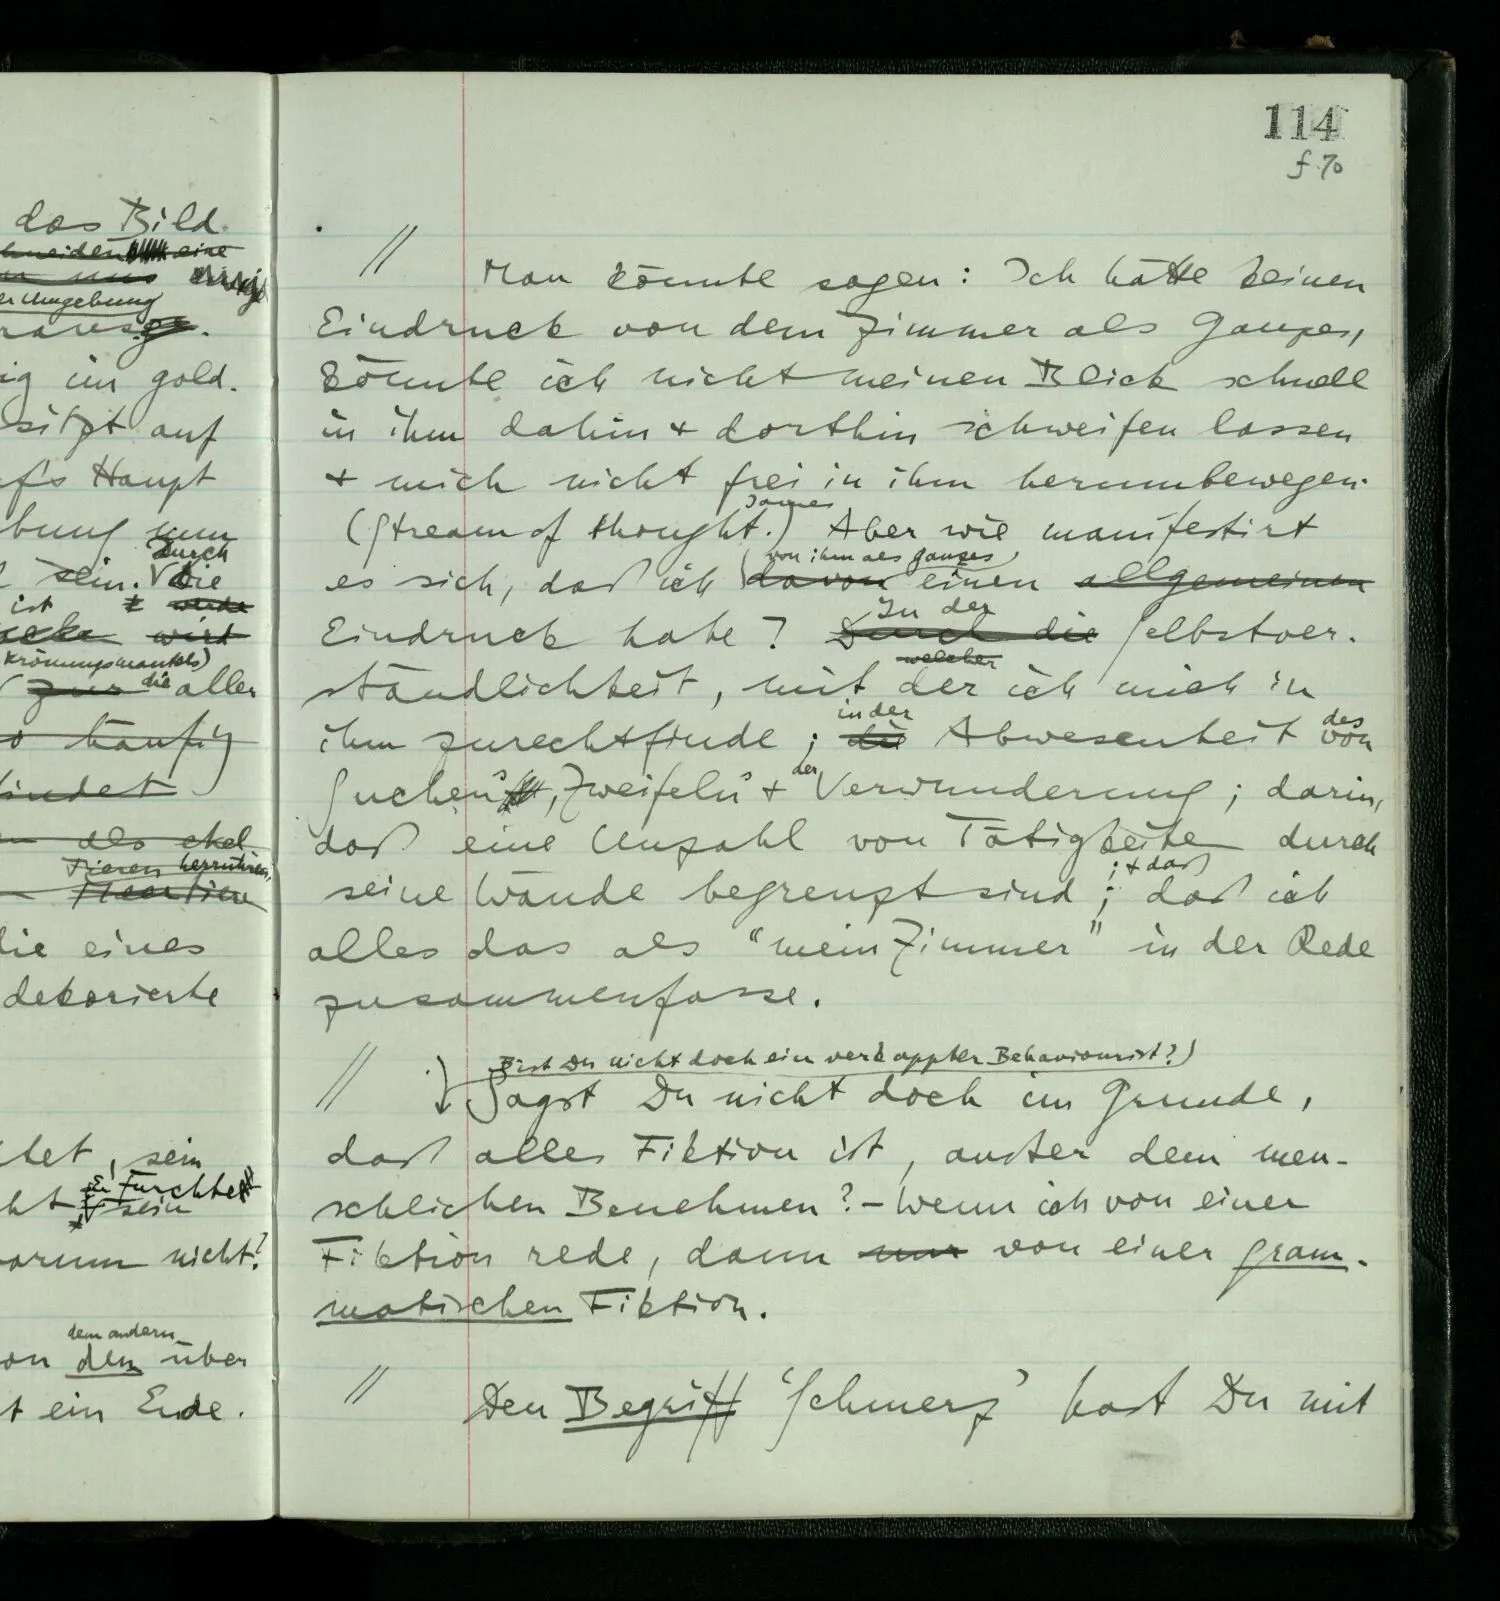 das Bild.
eine
er Umgebung
ig im gold.
sitzt auf
f's Haupt
bung zum
Durch
sein. Die
ist werde
wird
Krönungsmantels)
zur die aller
o häufig
findet
als ekel
Tieren herrühren,
Haartiere
die eines
dekorierte
tet, sein
Er fürchtet
sein
warum nicht?
dem andern
von den über
t ein Ende.
114
f. 70
// Man könnte sagen: Ich hätte keinen
Eindruck von dem Zimmer als Ganzes,
könnte ich nicht meinen Blick schnell
in ihm dahin + dorthin schweifen lassen
+ mich nicht frei in ihm herumbewegen.
James
(Stream of thought.) Aber wie manifestirt
von ihm als Ganzes
es sich, daß ich davon einen allgemeinen
In der
Eindruck habe? Durch die Selbstver-
welcher
ständlichkeit, mit der ich mich in
in der des
ihm zurechtfinde; die Abwesenheit von
der
Suchens, Zweifelns + Verwunderung; darin,
daß eine Unzahl von Tätigkeiten durch
; + daß
seine Wände begrenzt sind; daß ich
alles das als "mein Zimmer" in der Rede
zusammenfasse.
Bist Du nicht doch ein verkappter Behaviourist?)
// Sagst Du nicht doch im Grunde,
daß alles Fiktion ist, außer dem men-
schlichen Benehmen? – Wenn ich von einer
Fiktion rede, dann nur von einer gram-
matischen Fiktion.
// Den Begriff 'Schmerz' hast Du mit